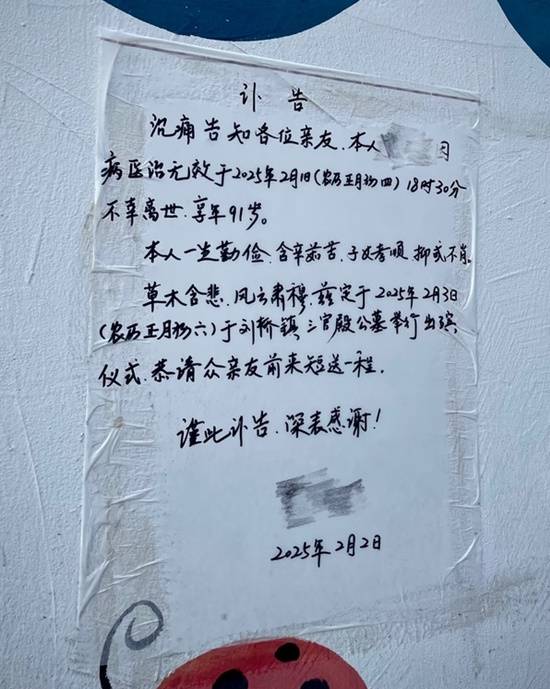 讣告
沉痛告知各位亲友、本人 因
病医治无效于2025年2月1日(农历正月初四)18时30分
不幸离世、享年91岁。
本人一生勤俭、含辛茹苦、子女孝顺 抑或不肖。
草木含悲、风云肃穆、兹定于2025年2月3日
(农历正月初六)于刘桥镇三官殿公墓举行出殡
仪式、恭请众亲友前来短送一程。
谨此讣告、深表感谢!
2025年2月2日